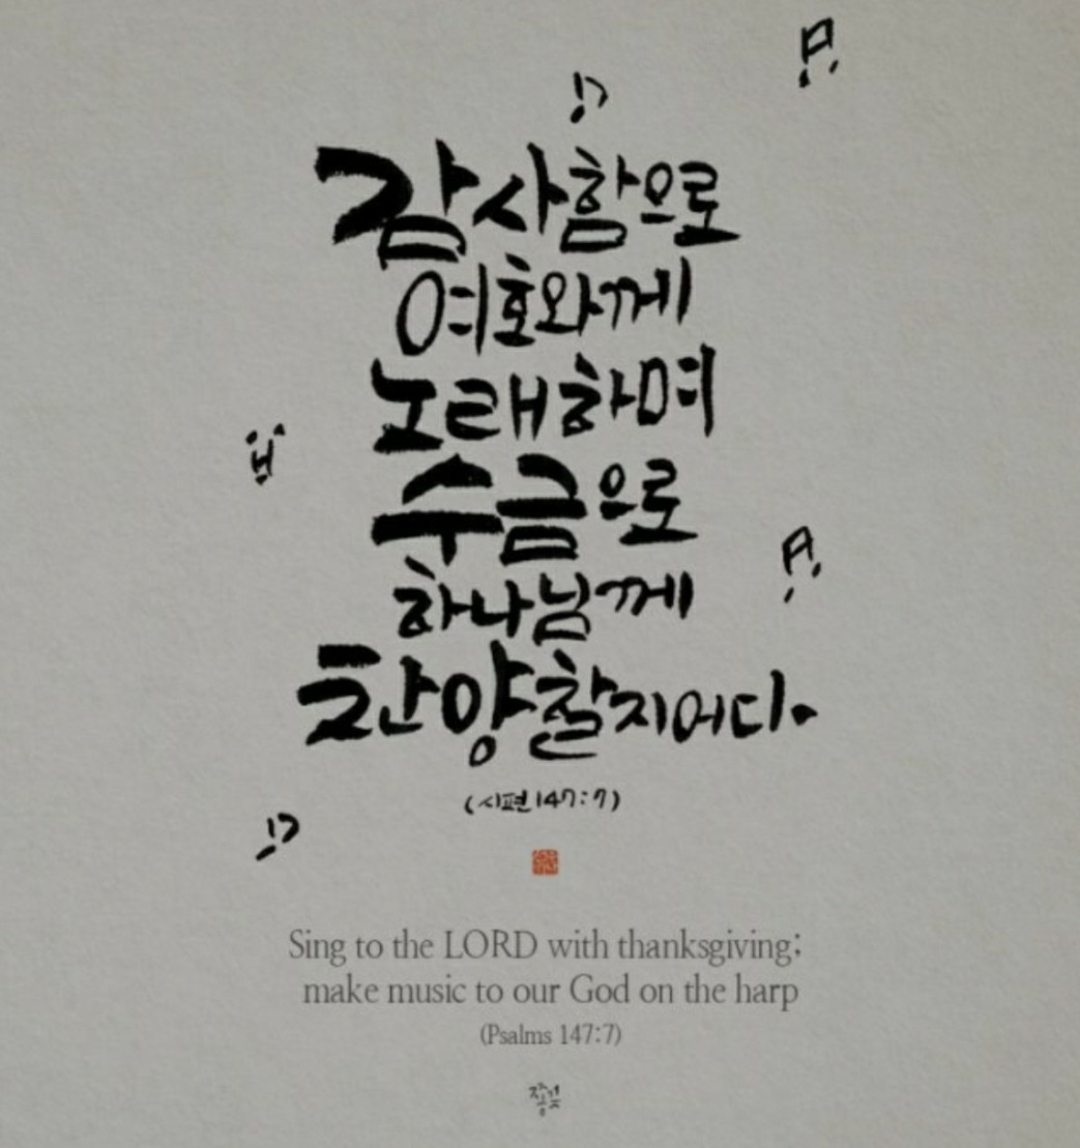 감사함으로
여호와께
노래하며
수금으로
하나님께
찬양할지어다.
(시편147:7)
Sing to the LORD with thanksgiving;
make music to our God on the harp
(Psalms 147:7)